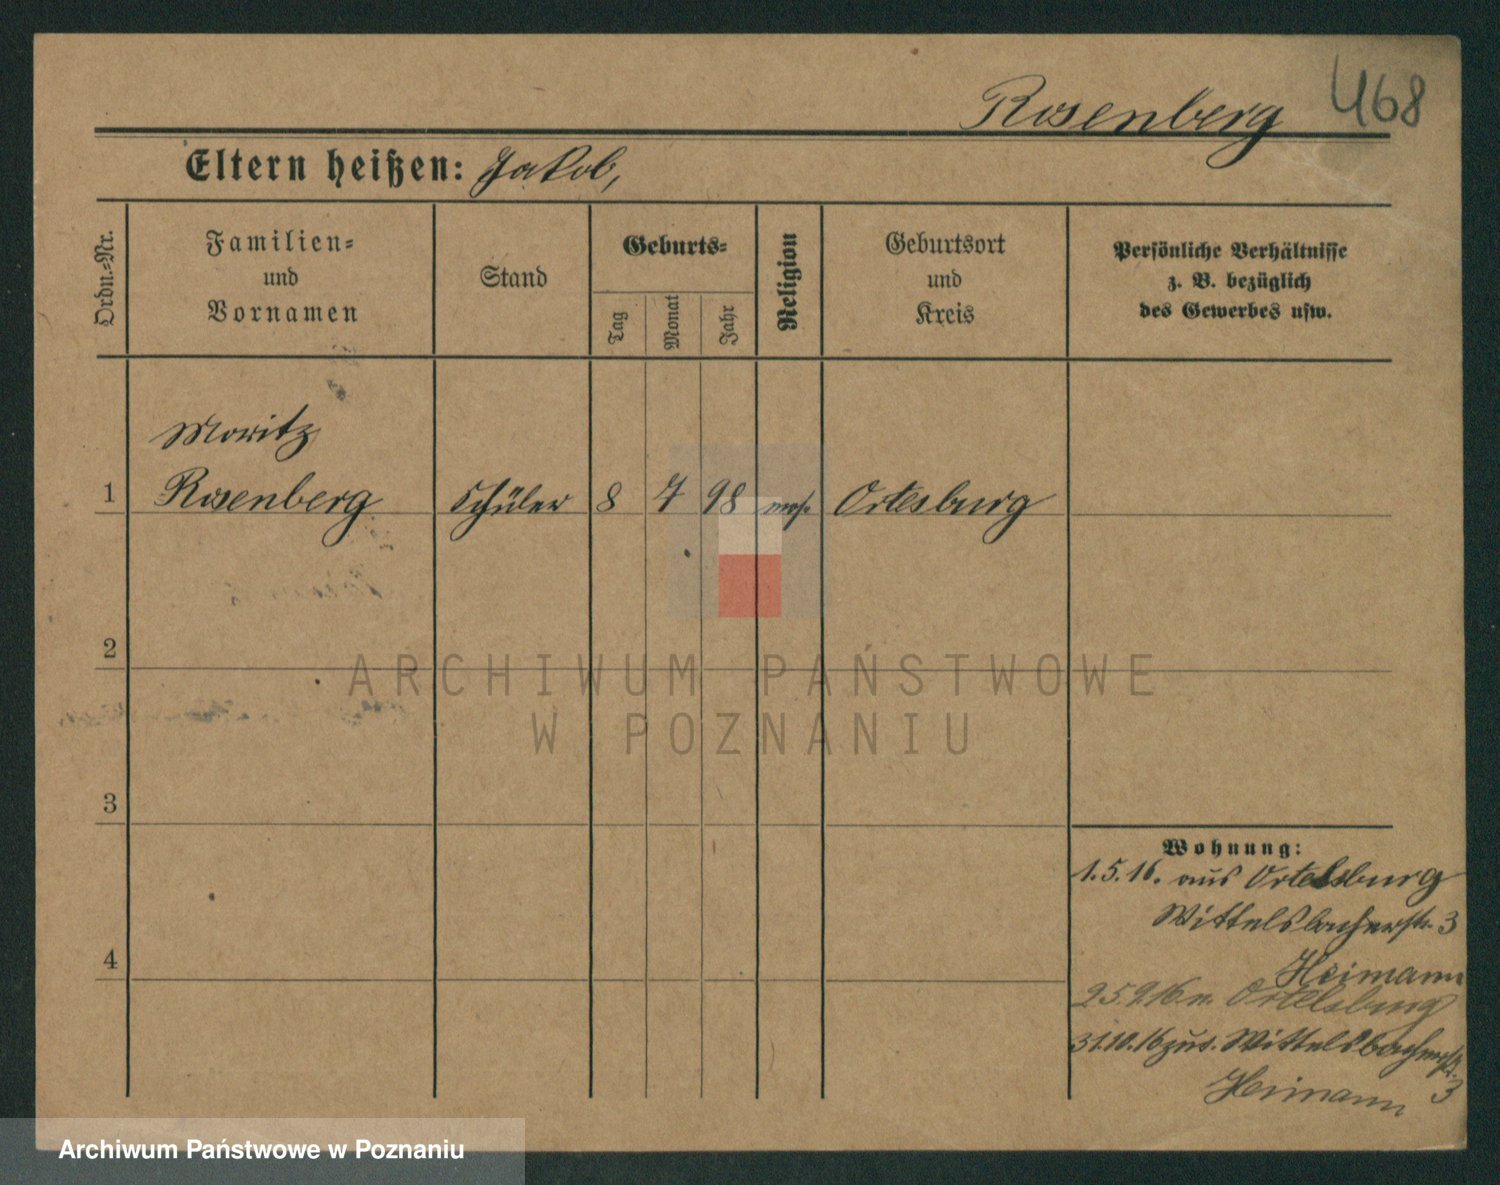 Rosenberg 468
Eltern heißen: Jakob,
Ordn.-Nr.
Familien-
und
Vornamen
Stand
Geburts-
Tag
Monat
Jahr
Religion
Geburtsort
und
Kreis
Persönliche Verhältnisse
z. B. bezüglich
des Gewerbes usw.
Moritz
1 Rosenberg Schüler 8 7 98 mos. Ortelsburg
2
3
4
ARCHIWUM PAŃSTWOWE
W POZNANIU
Wohnung:
1.5.16. aus Ortelsburg
Wittelsbacherstr. 3
Heimann
25.9.16 n. Ortelsburg
31.10.16 zur. Wittelsbacherstr. 3
Heimann
Archiwum Państwowe w Poznaniu